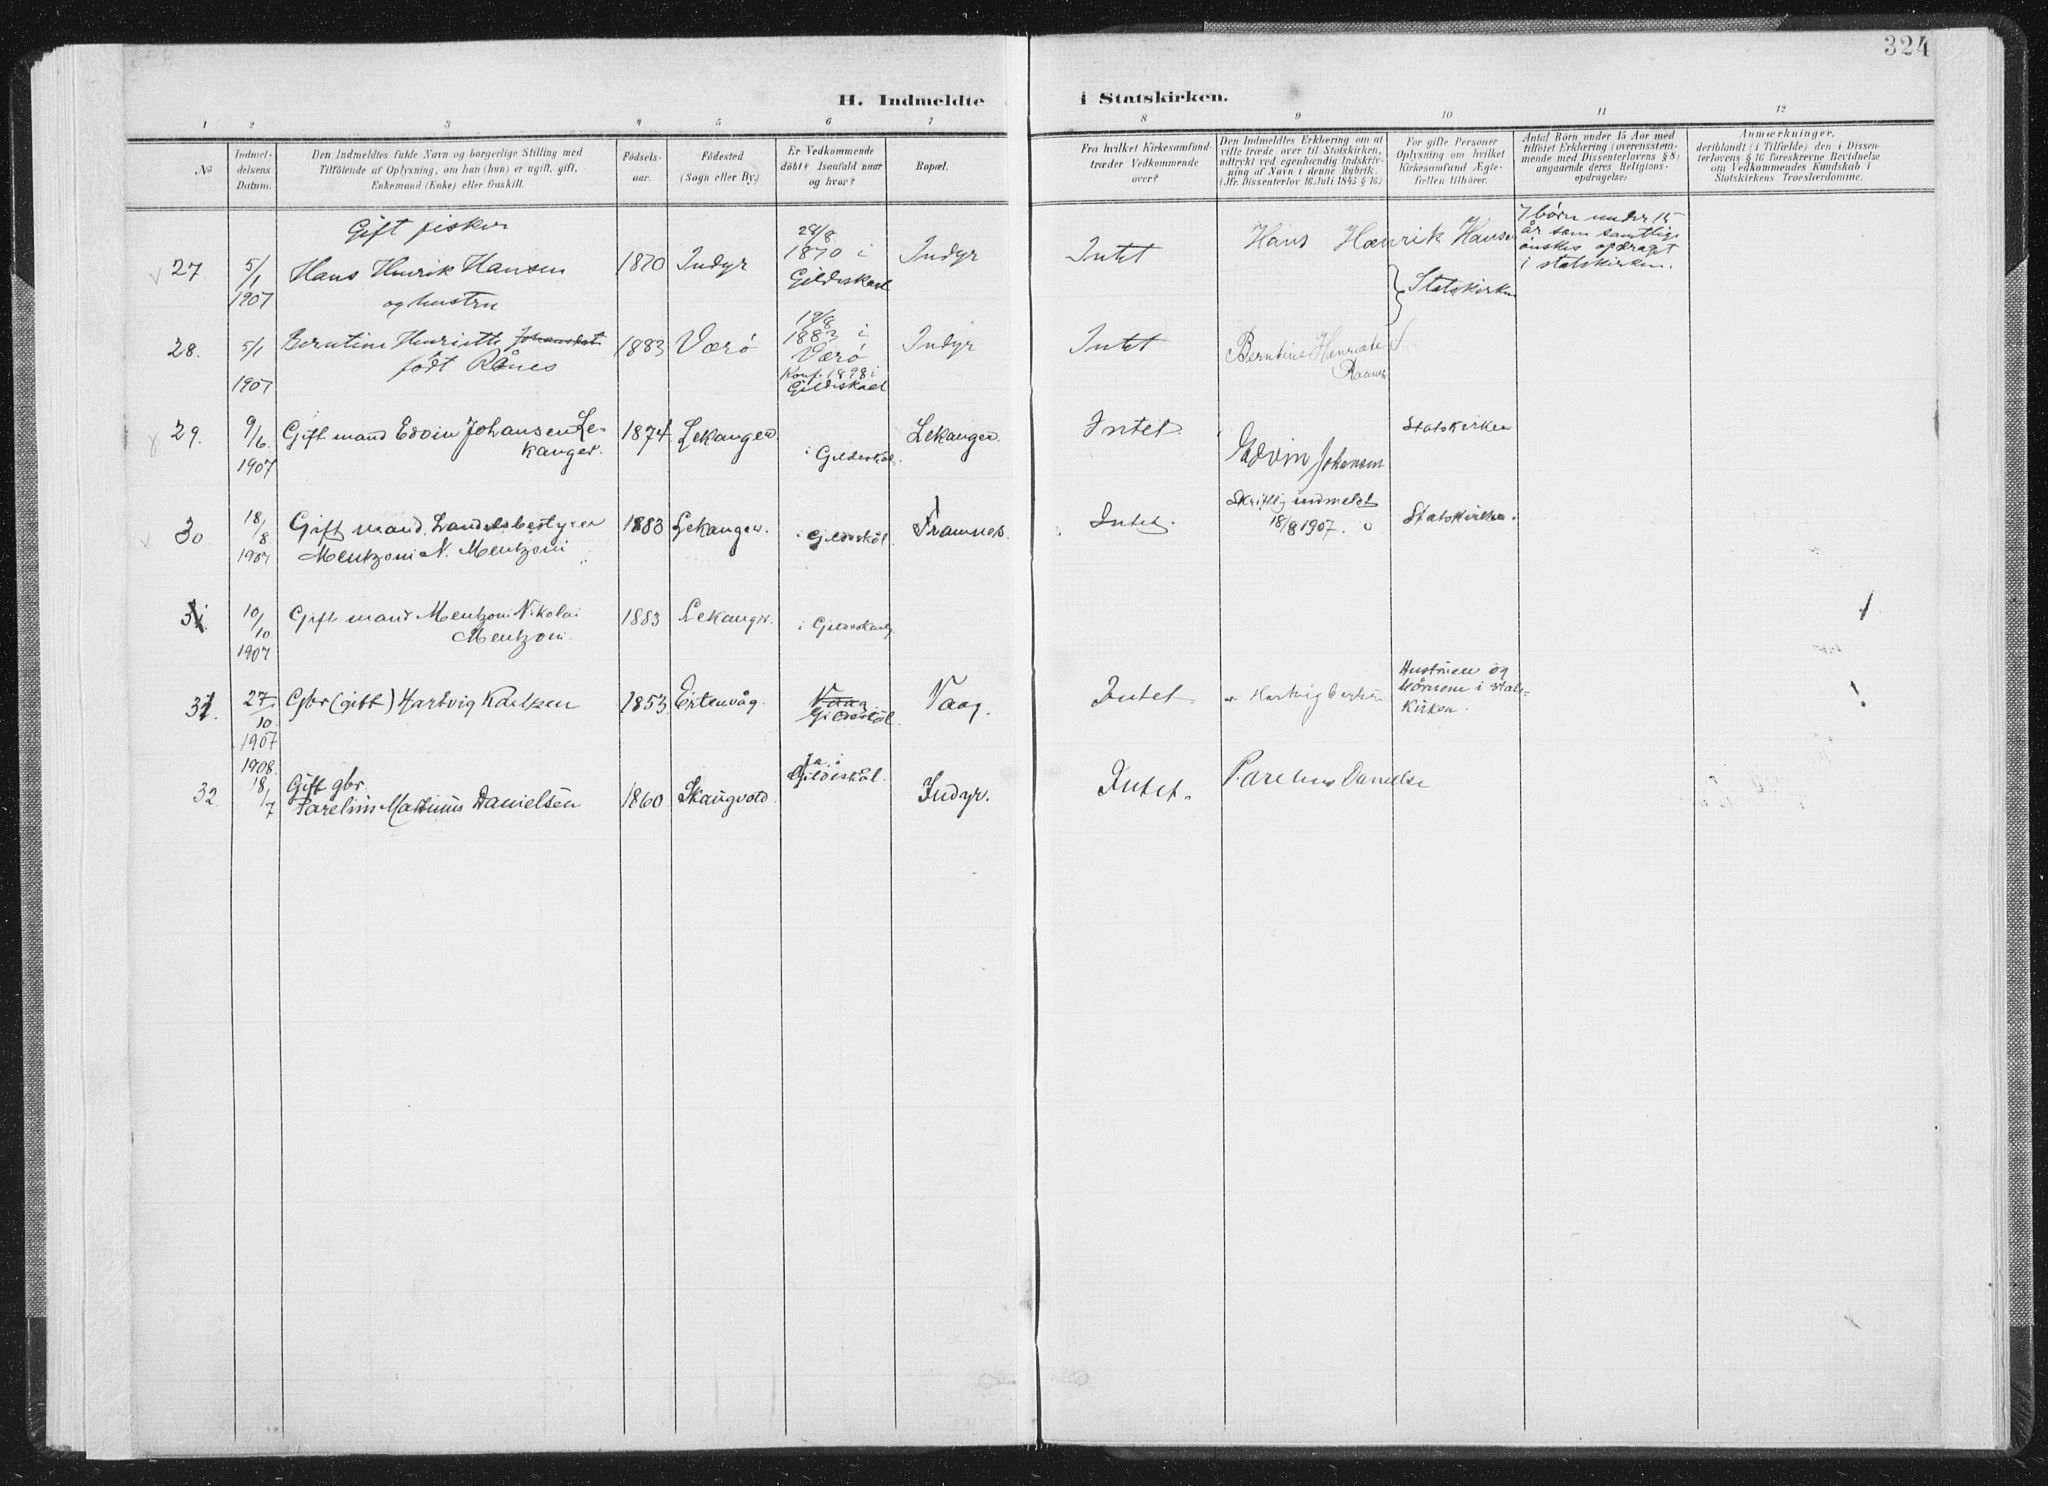 324
H. Indmeldte i Statskirken.
1 2 3 4 5 6 7 8 9 10 11 12
No
Indmel-
delsens
Datum.
Den Indmeldtes fulde Navn og borgerlige Stilling med
Tilføiende af Oplysning, om han (hun) er ugift, gift,
Enkemand (Enke) eller fraskilt.
Fødsels-
aar.
Fødested
(Sogn eller By.)
Er Vedkommende
døbt? Isaafald naar
og hvor?
Bopæl.
Fra hvilket Kirkesamfund
træder Vedkommende
over?
Den Indmeldtes Erklæring om at
ville træde over til Statskirken,
udtrykt ved egenhændig Indskriv-
ning af Navn i denne Rubrik.
(Jfr. Dissenterlov 16 Juli 1845 § 16.)
For gifte Personer
Oplysning om hvilket
Kirkesamfund Ægte-
fællen tilhører.
Antal Børn under 15 Aar med
tilføiet Erklæring (overensstem-
mende med Dissenterlovens § 8)
angaaende deres Religions-
opdragelse:
Anmærkninger,
deriblandt (i Tilfælde) den i Dissen-
terlovens § 16 foreskrevne Bevidnelse
om Vedkommendes Kundskab i
Statskirkens Troeslærdomme.
27.
5/1
1907
Gift fisker
Hans Henrik Hansen
og hustru
1870
Indyr
28/8
1870 i
Gildeskaal
Indyr
Intet
Hans Henrik Hansen
Statskirken
7 børn under 15
år som samtlige
ønskes opdraget
i statskirken.
28.
5/1
1907
Berntine Henriette Johansdat
født Rånes
1883
Værø
19/8
1883 i
Værø
Konf. 1898 i
Gildeskaal
Indyr
Intet
Berntine Henriete
29.
9/6
1907
Gift mand Edvin Johansen Le-
kanger.
1874
Lekanger.
i Gildeskål.
Lekanger.
Intet.
Edvin Johansen
Statskirken
30
18/8
1907
Gift mand, Handelsbestyrer
Mentzoni N. Mentzoni
1883
Lekanger.
i Gildeskål
Framnes.
Intet.
Skriftlig indmeldt
18/8 1907.
Statskirken.
31
10/10
1907
Gift mand Mentzoni Nikolai
Mentzoni.
1883
Lekanger.
i Gildeskaal
31.
27/10
1907
Gbr (gift) Hartvig Karlsen
1853
Estenvåg.
Vaag
Gildeskål
Vaag.
Intet
Hustruen og
børnene i stats-
kirken.
32
1908.
18/7
Gift gbr.
Parelius Martinus Danielsen
1860
Skaugvold.
Ja, i
Gildeskål.
Indyr.
Intet.
Parelius Danielse